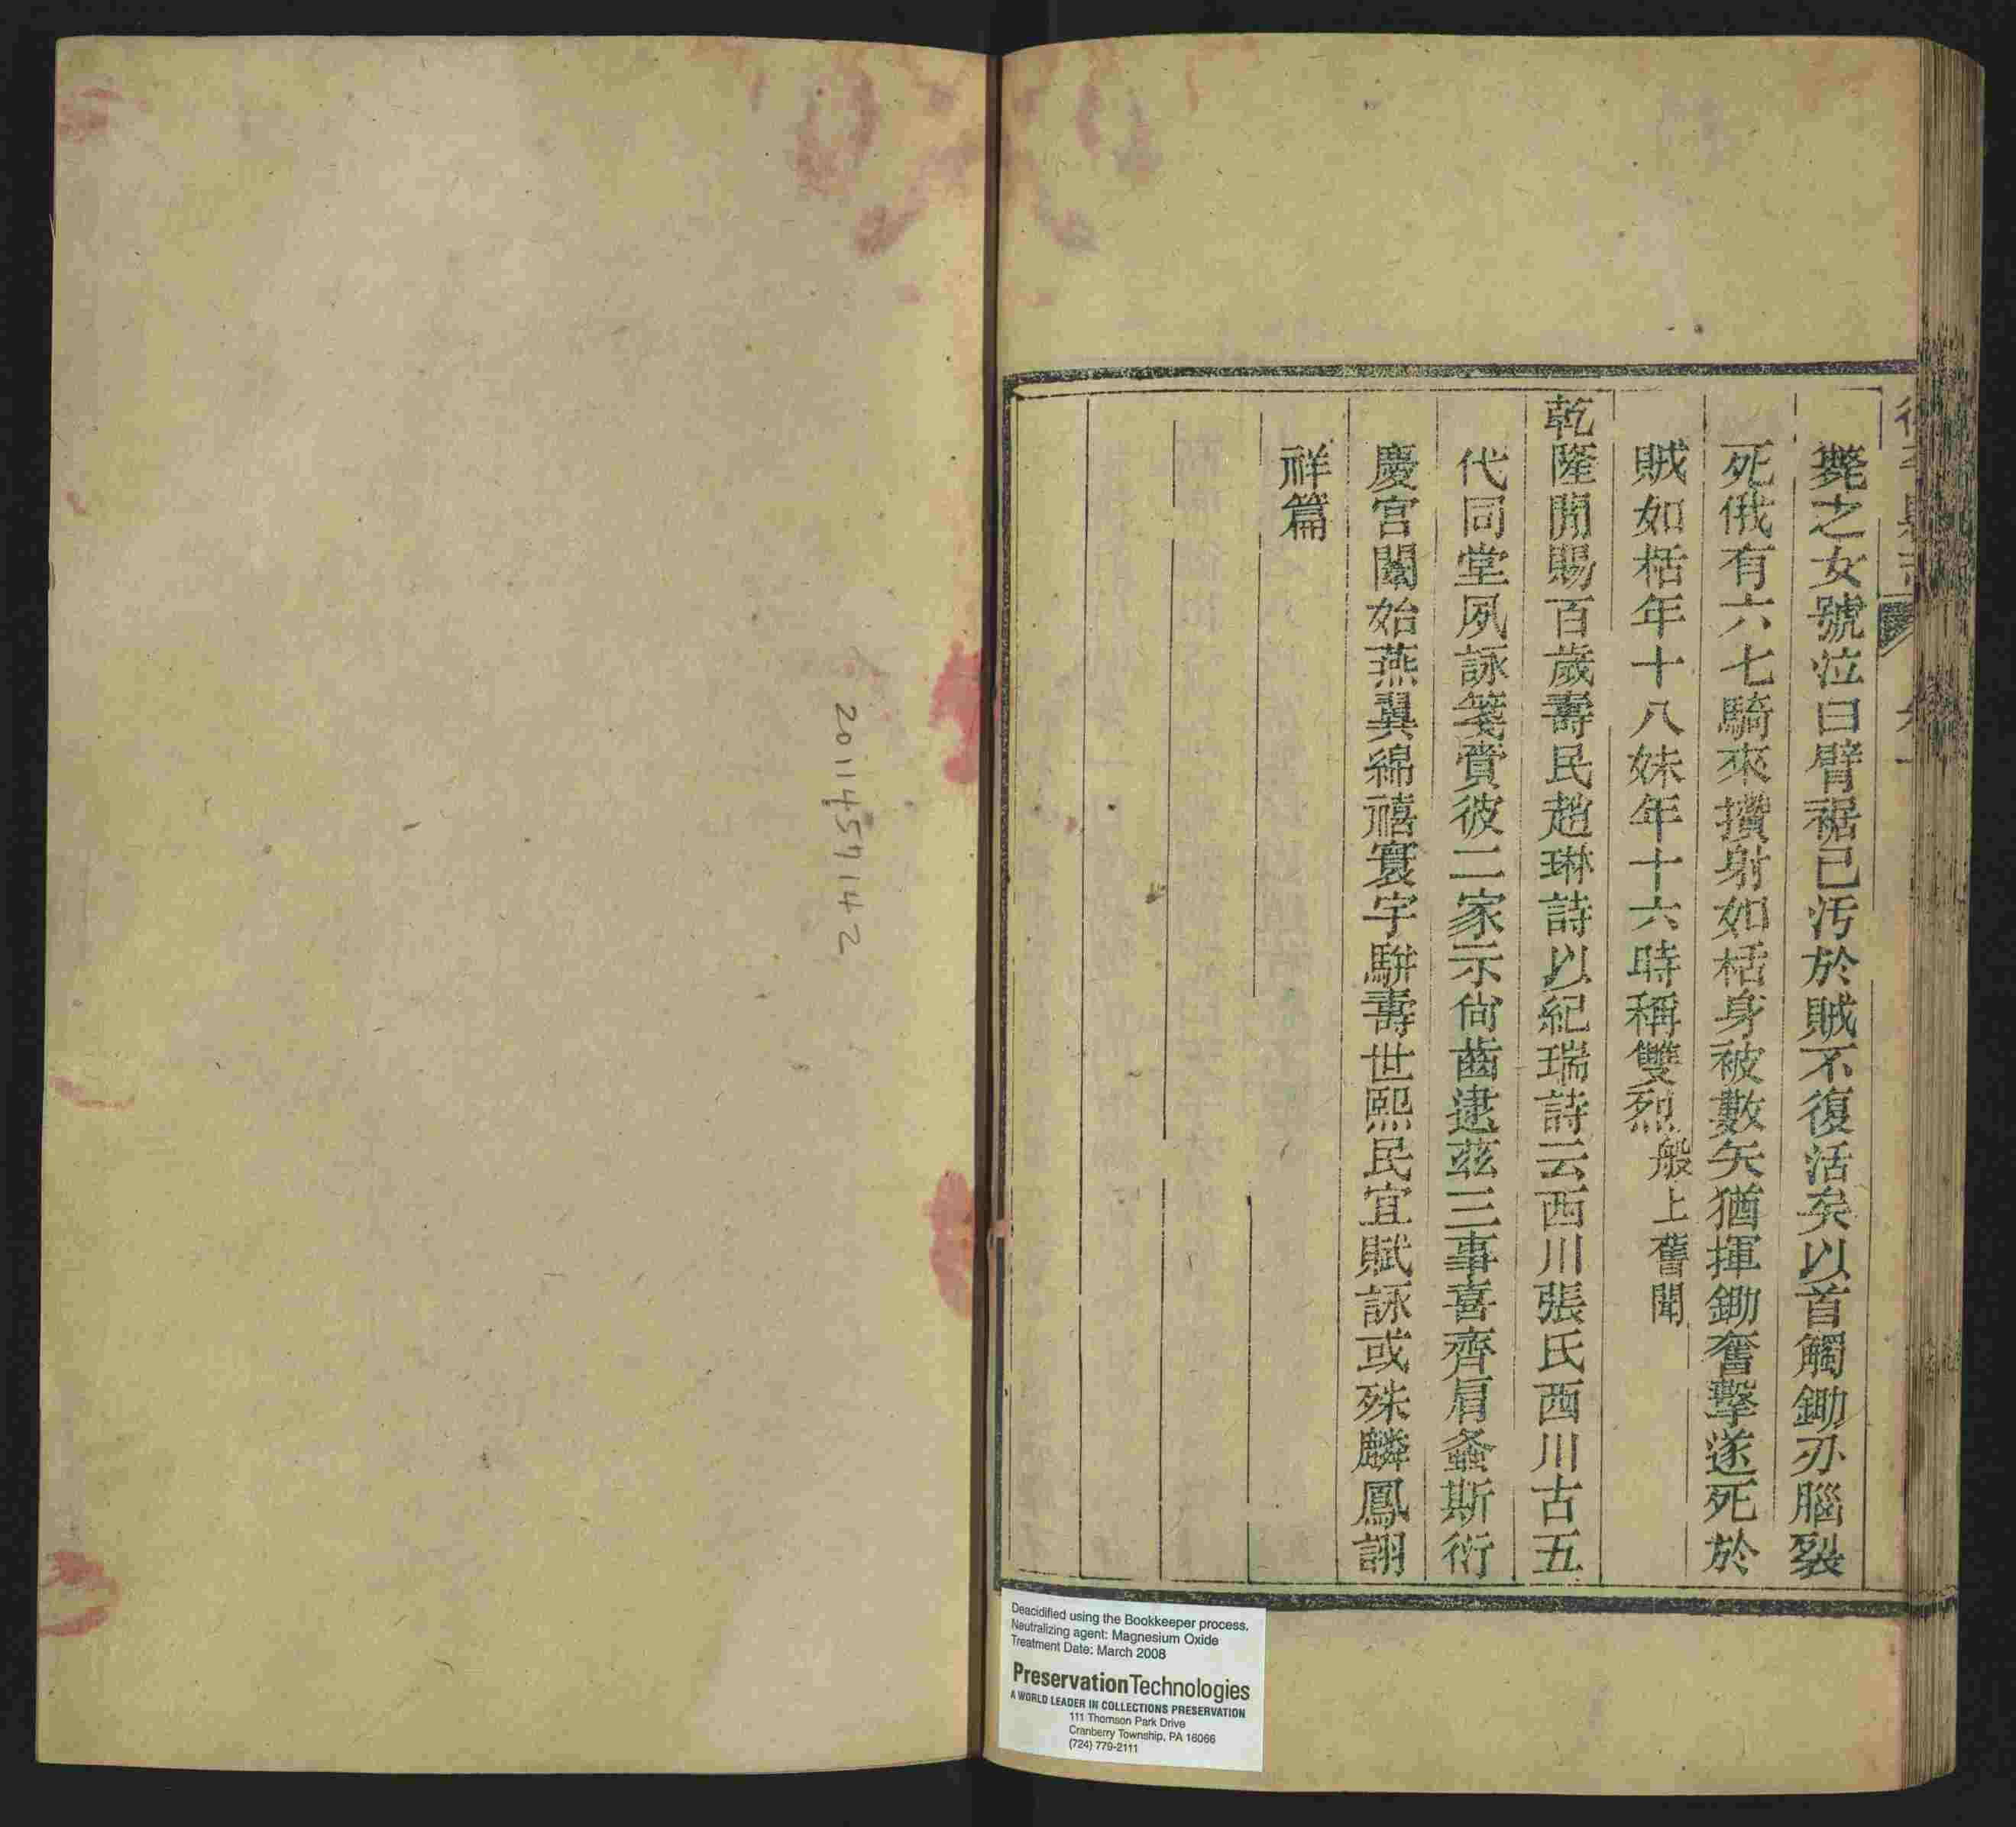 斃之女號泣曰臂裾已汚於賊不復活矣以首觸鋤刃腦裂
死俄有六七騎來攢射如栝身被數矢猶揮鋤奮擊遂死於
賊如栝年十八妹年十六時稱雙烈般上舊聞
乾隆間賜百歲壽民趙琳詩以紀瑞詩云西川張氏西川古五
代同堂夙詠箋賞彼二家示尙齒逮茲三事喜齊肩螽斯衍
慶宮闈始燕翼綿禧寰宇駢壽世熙民宜賦詠或殊麟鳳詡
祥篇
Deacidified using the Bookkeeper process.
Neutralizing agent: Magnesium Oxide
Treatment Date: March 2008
PreservationTechnologies
A WORLD LEADER IN COLLECTIONS PRESERVATION
111 Thomson Park Drive
Cranberry Township, PA 16066
(724) 779-2111
2011457142